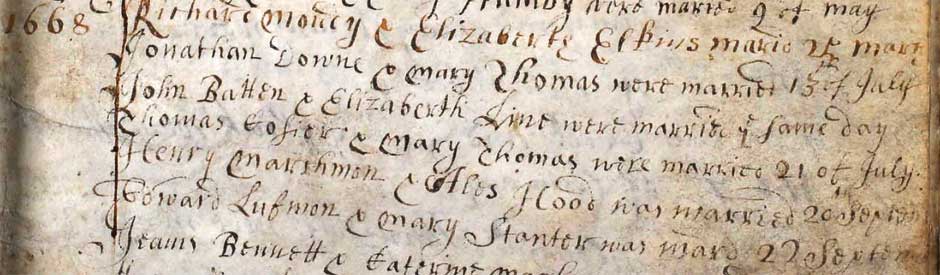 were maried 9 of may
1668 Richard Moucy & Elizaberth Elkins marid 25 mart
Jonathan Downe & Mary Thomas were married 15th of July
John Batten & Elizaberth Line were married ye same day
Thomas Cosier & Mary Thomas were married 21 of July
Henry Marthmon & Ales Hood was married 20 Septem
Edward Lufmon & Mary Stanter was mard 22 Septem
Jeams Bennett & Katerine